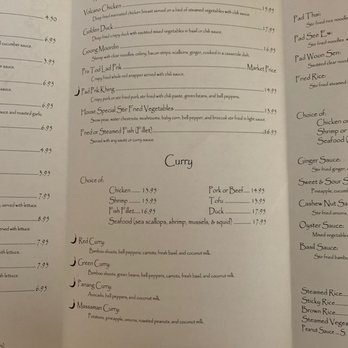 4.50
cucumber sauce.
and roasted garlic.
served with lettuce.
8.95
served with lettuce.
7.95
served with lettuce.
6.95
with lettuce.
6.95
Volcano Chicken 15.95
Deep fried marinated chicken breast served on a bed of steamed vegetables with chili sauce.
Golden Duck 17.95
Deep fried crispy duck with sautéed mixed vegetables in basil or chili sauce.
Goong Moorobn 16.95
Shrimp with clear noodles, celery, bacon strips, scallions, ginger, cooked in a casserole dish.
Pla Tod Lad Prik Market Price
Crispy fried whole red snapper served with chili sauce.
Pad Prik Khing 14.95
Crispy pork or stir fried pork stir fried with chili paste, green beans, and bell peppers.
House Special Stir Fried Vegetables 13.95
Snow peas, water chestnuts, mushrooms, baby corn, bell pepper, and broccoli stir fried in light sauce.
Fried or Steamed Fish (Fillet) 16.95
Served with any sauté or curry sauce.
Curry
Choice of:
Chicken 13.95 Pork or Beef 14.95
Shrimp 15.95 Tofu 13.95
Fish Fillet 16.95 Duck 17.95
Seafood (sea scallops, shrimp, mussels, & squid) 17.95
Red Curry
Bamboo shoots, bell peppers, carrots, fresh basil, and coconut milk.
Green Curry
Bamboo shoots, green beans, bell peppers, carrots, fresh basil, and coconut milk.
Panang Curry
Avocado, bell peppers, and coconut milk.
Massaman Curry
Potatoes, pineapple, onions, roasted peanuts, and coconut milk.
Pad Thai:
Stir fried rice noodles
Pad See Ew:
Stir fried noodles
Pad Woon Sen:
Sautéed clear noodles
Fried Rice:
Stir fried
Choice of:
Chicken or
Shrimp or
Seafood
Ginger Sauce:
Stir fried ginger,
Sweet & Sour S
Pineapple, cucumber
Cashew Nut Sauce
Stir fried onions,
Oyster Sauce:
Mixed vegetables
Basil Sauce:
Stir fried bamboo
Steamed Rice
Sticky Rice
Brown Rice
Steamed Vegeta
Peanut Sauce .. S